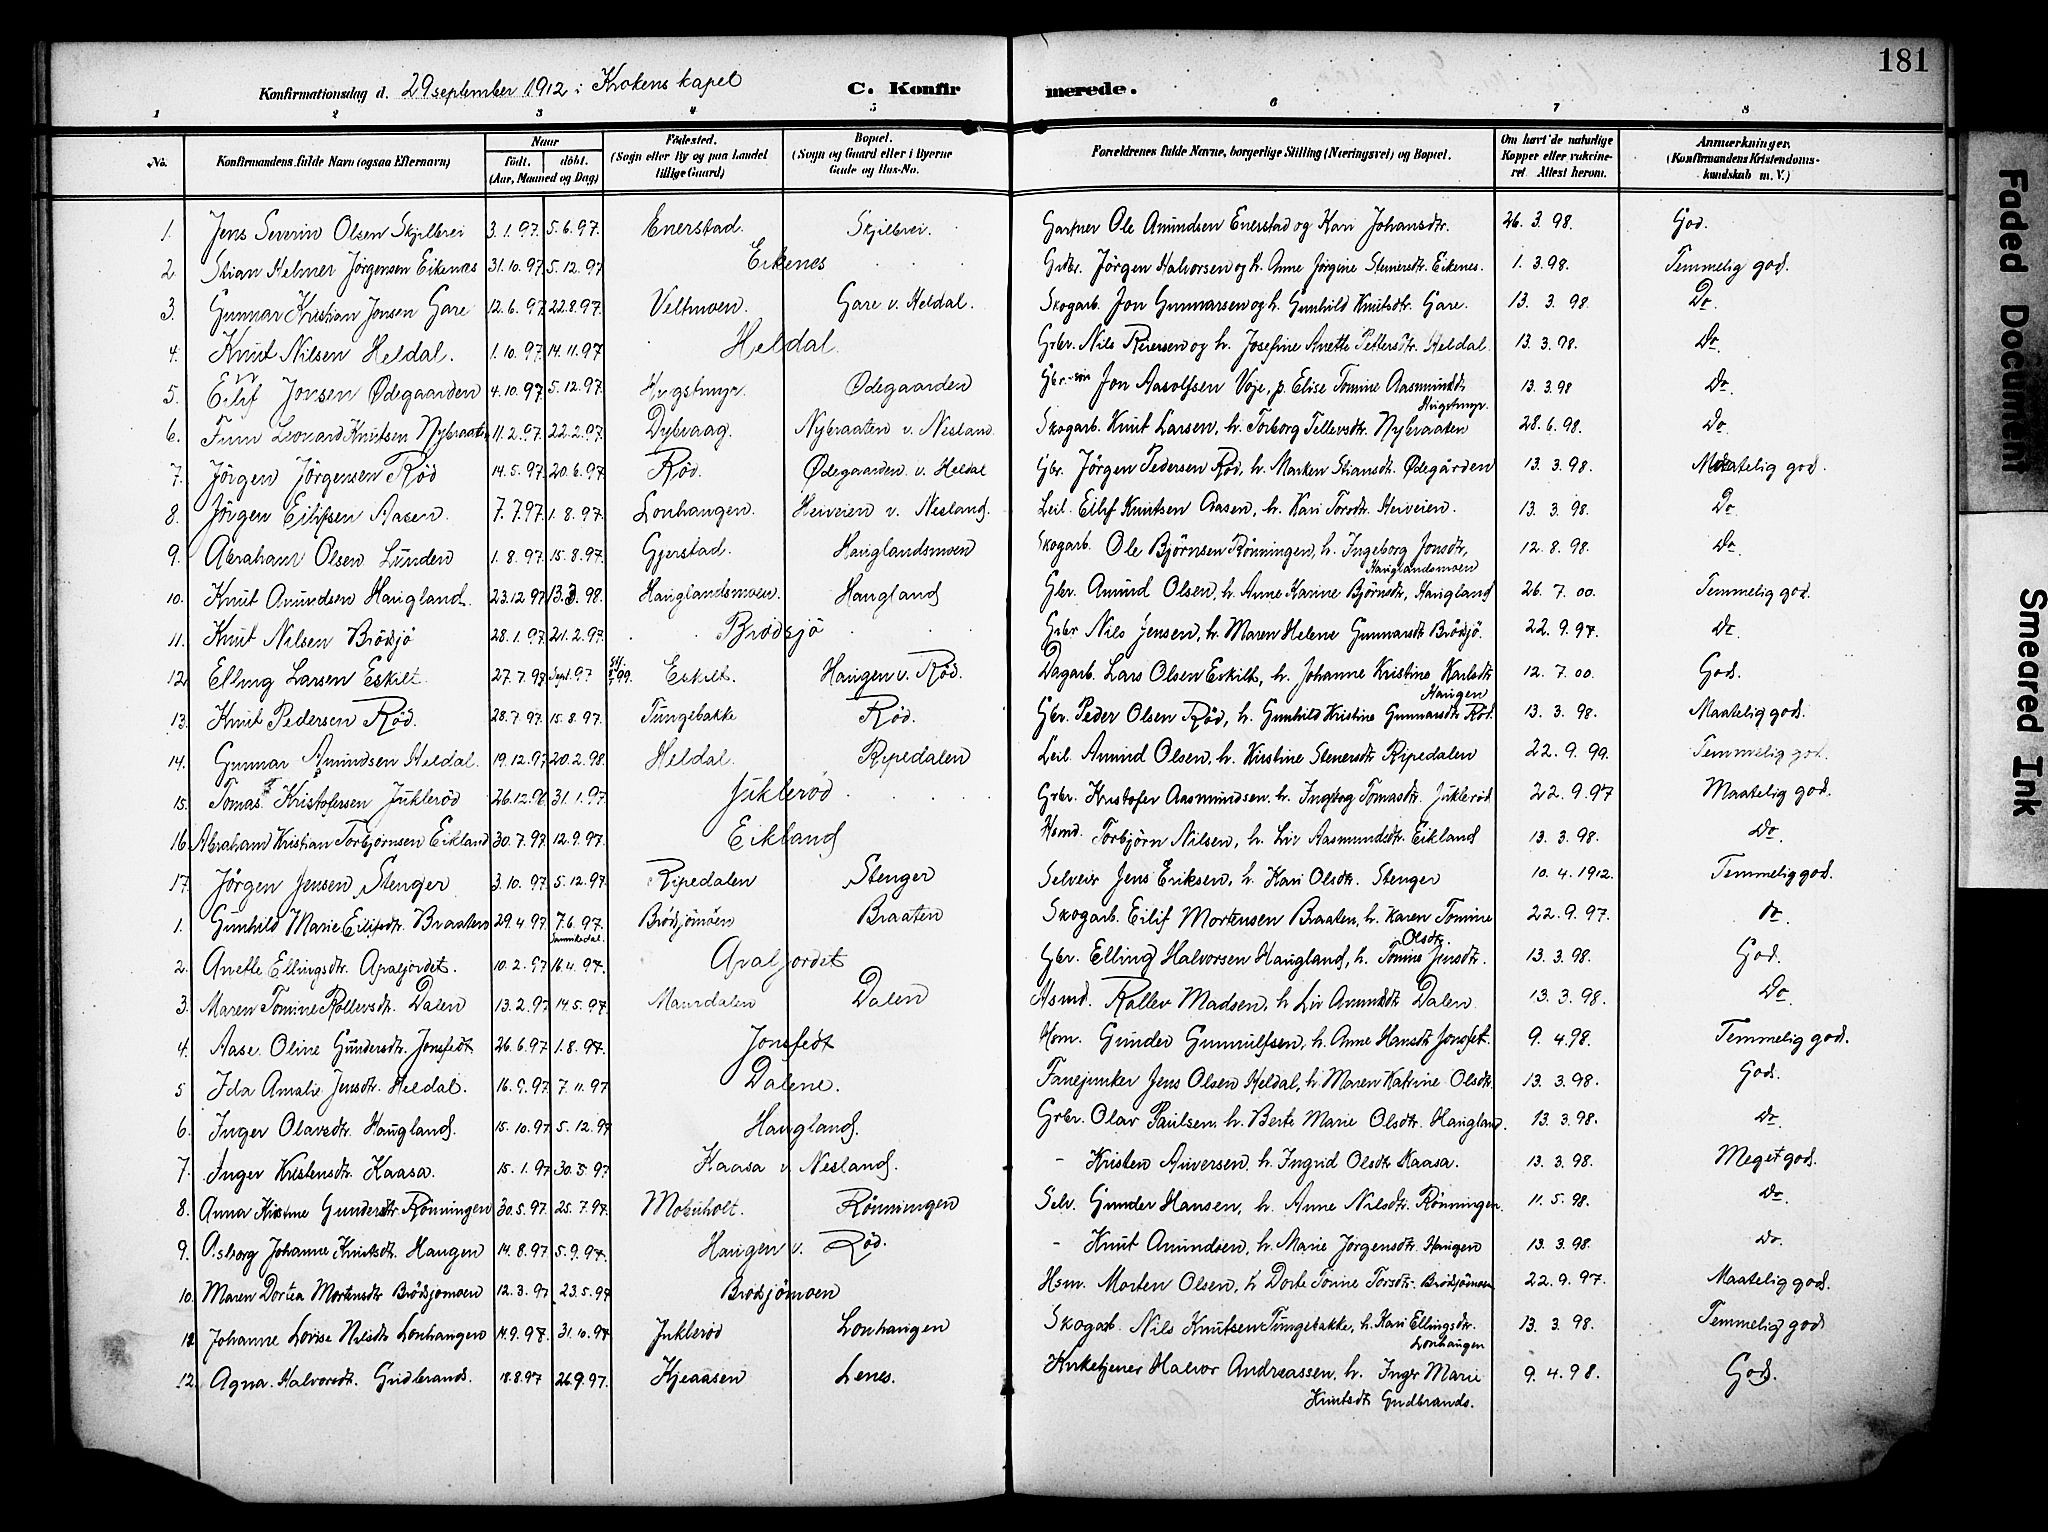 181
Konfirmationsdag d. 29 september 1912 i Krokens kapel C. Konfirmerede.
1 2 3 4 5 6 7 8
No. Konfirmandens fulde Navn (ogsaa Efternavn) Naar født. døbt. (Aar, Maaned og Dag) Fødested. (Sogn eller By og paa Landet tillige Gaard) Bopæl. (Sogn og Gaard eller i Byerne Gade og Hus-No. Forældrenes fulde Navne, borgerlige Stilling (Næringsvei) og Bopæl. Om havt de naturlige Kopper eller vakcineret. Attest herom. Anmærkninger. (Konfirmandens Kristendomskundskab m. V.)
1. Jens Severin Olsen Skjilbrei 3.1.97. 5.6.97. Enerstad. Skjilbrei. Gartner Ole Amundsen Enerstad og Kari Johansdtr. 26. 3. 98. God.
2 Stian Helmer Jörgensen Eikenes 31.10.97. 5.12.97 Eikenes Grdbr. Jörgen Halvorsen og h. Anne Jörgine Stenersdtr. Eikenes. 1. 3.98. Temmelig god.
3. Gunnar Kristian Jonsen Gare 12.6.97. 22.8.97. Veltmoen. Gare v. Heldal. Skogarb. Jon Gunnarsen og h. Gunhild Knutsdtr. Gare. 13. 3. 98. Do
4. Knut Nilsen Heldal. 1.10.97. 14.11.97 Heldal. Grbr. Nils Reiersen og h. Josefine Anette Pettersdtr. Heldal. 13. 3.98. Do.
5. Eilif Jonsen Ødegaarden 4.10.97. 5.12.97. Hugstmyr. Ødegaarden Gbr.-søn Jon Aasolfsen Voje, p. Elise Tomine Aasmundsdtr. Hugstmyr. 13.3.98 Do.
6. Leonard Knutsen Nybraaten 11.2.97. 22.2.97. Dybvaag. Nybraaten v. Nesland. Skogarb. Knut Larsen, h. Torborg Tellevsdtr. Nybraaten 28.6.98. Do.
7. Jörgen Jörgensen Rød 14.5.97 20.6.97. Rød. Ødegaarden v. Heldal Gbr. Jörgen Pedersen Rød, h. Marken Stiansdtr. Ødegården 13. 3. 98. Maatelig god.
8. Jörgen Eilifsen Aasen. 7.7.97. 1.8.97. Lonhaugen. Heiveien v. Nesland. Leil. Eilif Knutsen Aasen, h. Kari Torsdtr. Heiveien. 13. 3. 98. Do
9. Abraham Olsen Lunden 1.8.97. 15.8.97. Gjerstad. Hauglandsmoen Skogarb. Ole Björnsen Rönningen, h. Ingeborg Jonsdtr, Hauglandsmoen 12. 8. 98. Do.
10. Knut Amundsen Haugland. 23.12.97. 13.3.98. Hauglandsmoen. Haugland Gbr. Amund Olsen, h. Anne Karine Björnsdtr, Haugland 26. 7. 00. Temmelig god.
11. Knut Nilsen Brödsjö 28.1.97. 21.2.97. Brödsjö Grbr Nils Jensen, h. Maren Helene Gunnarsdtr Brödsjö. 22. 9. 97. Do.
12. Elling Larsen Eskilt. 27.7.98 Sept. 97 Eskilt. Haugen v. Rød. Dagarb. Lars Olsen Eskilt, h. Johanne Kristine Karlsdtr Haugen 12. 7. 00. God.
13. Knut Pedersen Rød. 28.7.97. 15.8.97. Tungebakke Rød. Gbr. Peder Olsen Rød, h. Gunhild Kristine Gunnarsdtr Rød. 13. 3. 98. Maatelig god.
14. Gunnar Amundsen Heldal. 19.12.97 20.2.98. Heldal. Ripedalen Leil. Amund Olsen, h. Kirstine Stenersdtr Ripedalen 22. 9. 99. Temmelig god.
15. Tomas Kristofersen Juklerød 26.12.96 31.1.97. Juklerød. Grbr. Kristofer Aasmundsen, h. Ingeborg Tomasdtr. Juklerød 22. 9. 97 Maatelig god.
16 Abraham Kristian Torbjörnsen Eikland 30.7.97. 12.9.97. Eikland Hsmd. Torbjörn Nilsen, h. Liv Aasmundsdtr. Eikland 13. 3. 98. Do.
17. Jörgen Jensen Stenger 3.10.97. 5.12.97. Ripedalen Stenger Selveier Jens Eriksen, h. Kari Olsdtr. Stenger 10. 4. 1912. Temmelig god.
1. Gunhild Marie Eilifsdtr. Braaten 29.4.97. 7.6.97. Brödsjömöen Braaten Skogarb. Eilif Mortensen Braaten, h. Karen Tomine Olsdtr. 22. 9. 97. Do.
2. Anette Ellingsdtr. Apaljordet. 10.2.97 16.4.97. Apaljordet Gbr. Elling Halvorsen Haugland, h. Tomine Jensdtr. 13. 3. 98. God.
3. Maren Tomine Rollevsdtr. Dalen 13.2.97. 14.5.97. Maurdalen Dalen Hsmd. Rollev Madsen, h. Liv Amundsdtr Dalen 13. 3. 98. Do.
4. Aase Oline Gundersdtr. Jonsfedt 26.6.97. 1.8.97. Jonsfedt Hsm. Gunder Gunnulfsen, h. Anne Hansdtr Jonsfet. 9. 4.98. Temmelig god.
5 Ida Amalie Jensdtr. Heldal. 16.9.97. 7.11.97 Dalene. Fanejunker Jens Olsen Heldal, h. Maren Katrine Olsdtr. 13. 3. 98. God.
6. Inger Olavsdtr. Haugland. 15.10.97. 5.12.97 Haugland. Grbr. Olav Paulsen, h. Berte Marie Olsdtr. Haugland. 13. 3.98. Do.
7. Inger Kristensdtr. Kaasa. 15.1.97. 30.5.97 Kaasa v. Nesland. - Kristen Aiversen, h. Ingrid Olsdtr Kaasa. 13. 3. 98. Meget god.
8. Anna Kristine Gundersdtr. Rönningen 30.5.97. 25.7.97. Moenholt. Rönningen Selv. Gunder Hansen, h. Anne Nilsdtr. Rönningen 11. 5. 98. Do.
9. Asborg Johanne Knutsdtr. Haugen 14.8.97 5.9.97. Haugen v. Rød. - Knut Amundsen, h. Marie Jörgensdtr. Haugen 13. 3. 98. Do.
10. Maren Dortea Mortensdtr Brödsjömoen 12.3.97 23.5.97 Brödsjömoen Hsm. Morten Olsen, h. Dorte Tomine Torsdtr. Brödsjömoen 22. 9. 97. Maatelig god.
11. Johanne Lovise Nilsdtr. Lonhaugen 14.9.97. 31.10.97 Juklerød Lonhaugen Skogarb. Nils Knutsen Tungebakke, h. Kari Ellingsdtr. Lonhaugen 13. 3. 98. Temmelig god
12. Agna Halvorsdtr. Gudbrands. 18.8.97 26.9.97. Kjeaasen Lenes. Kirketjener Halvor Andreassen, h. Inger Marie Knutsdtr Gudbrands. 9. 4. 98. God.
Faded Document
Smeared Ink